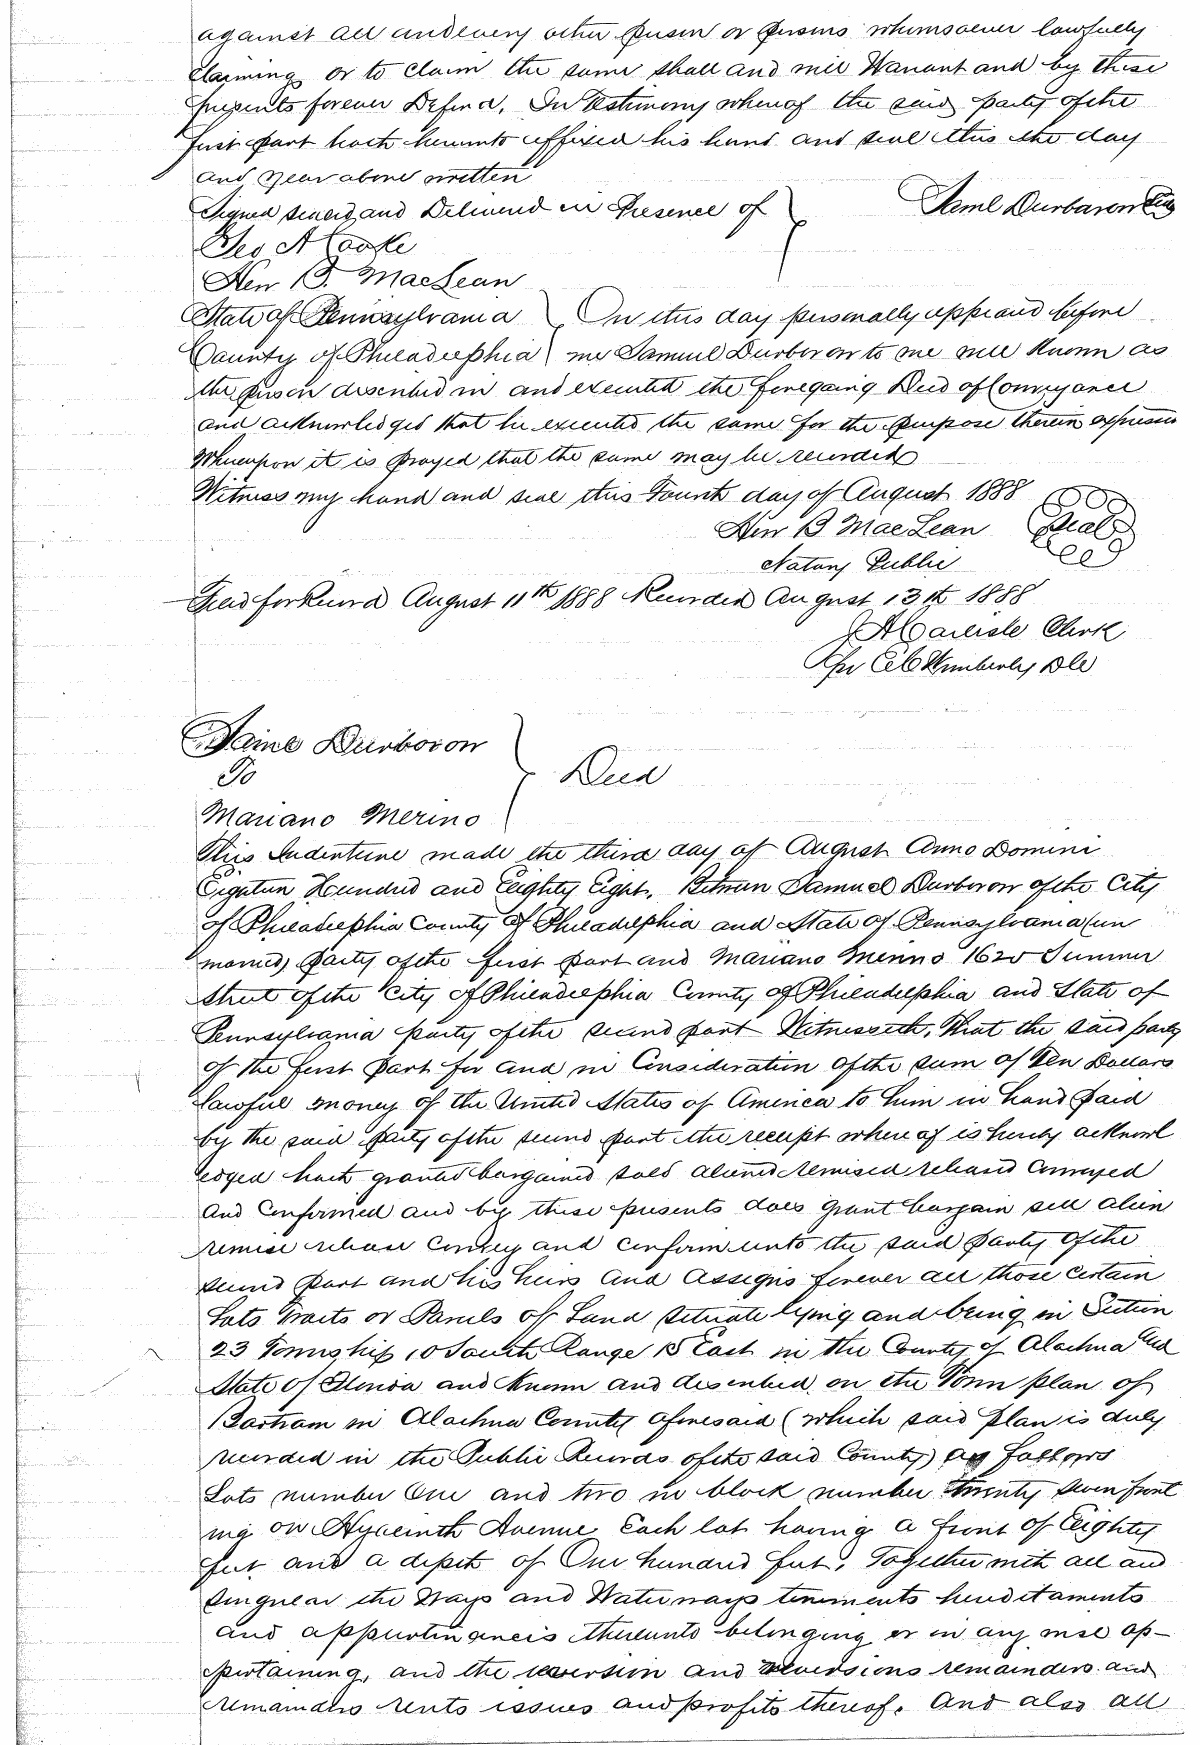 against all and every other person or persons whomsoever lawfully
Claiming or to claim the same shall and will Warrant and by these
presents forever Defend. In Testimony whereof the said party of the
first part hath hereunto affixed his hand and seal this the day
and year above written
Signed sealed and Delivered in Presence of
Saml Durboron Seal
Geo A Cooke
Hen B. MacLean
State of Pennsylvania
On this day personally appeared before
County of Philadelphia
me Samuel Durboron to me well Known as
the person described in and executed the foregoing Deed of Conveyance
and acknowledged that he executed the same for the purpose therein expressed
Whereupon it is prayed that the same may be recorded
Witness my hand and seal this Fourth day of August 1888
Hen B MacLean
Seal
Notary Public
Filed for Record August 11th 1888 Recorded August 13th 1888
J A Carlisle Clerk
Per C C Wimberly DC
Saml Durboron
To
Deed
Mariano Merino
This Indenture made the third day of August Anno Domini
Eighteen Hundred and Eighty Eight. Between Samuel Durboron of the City
of Philadelphia County of Philadelphia and State of Pennsylvania (un
married) party of the first part and Mariano Merino 1620 Summer
Street of the City of Philadelphia County of Philadelphia and State of
Pennsylvania party of the second part Witnesseth, That the said party
of the first part for and in Consideration of the sum of Ten Dollars
lawful money of the United States of America to him in hand paid
by the said party of the second part the receipt whereof is hereby acknowl
edged hath granted bargained sold aliened remised released Conveyed
And Confirmed and by these presents does grant bargain sell alien
remise release Convey and confirm unto the said party of the
second part and his heirs And Assigns forever all those Certain
Lots Tracts or Parcels of Land situate lying and being in Section
23 Township 10 South Range 18 East in the County of Alachua and
State of Florida and Known and described on the Town plan of
Bartram in Alachua County aforesaid (which said plan is duly
recorded in the Public Records of the said County) as follows
Lots number One and two in block number twenty seven front
ing on Hyacinth Avenue Each lot having a front of Eighty
feet and a depth of One hundred feet, Together with all and
singular the Ways and Waterways tenements hereditaments
and appurtenances thereunto belonging or in any wise ap-
pertaining, and the reversion and reversions remainders and
remainders rents issues and profits thereof. And also all